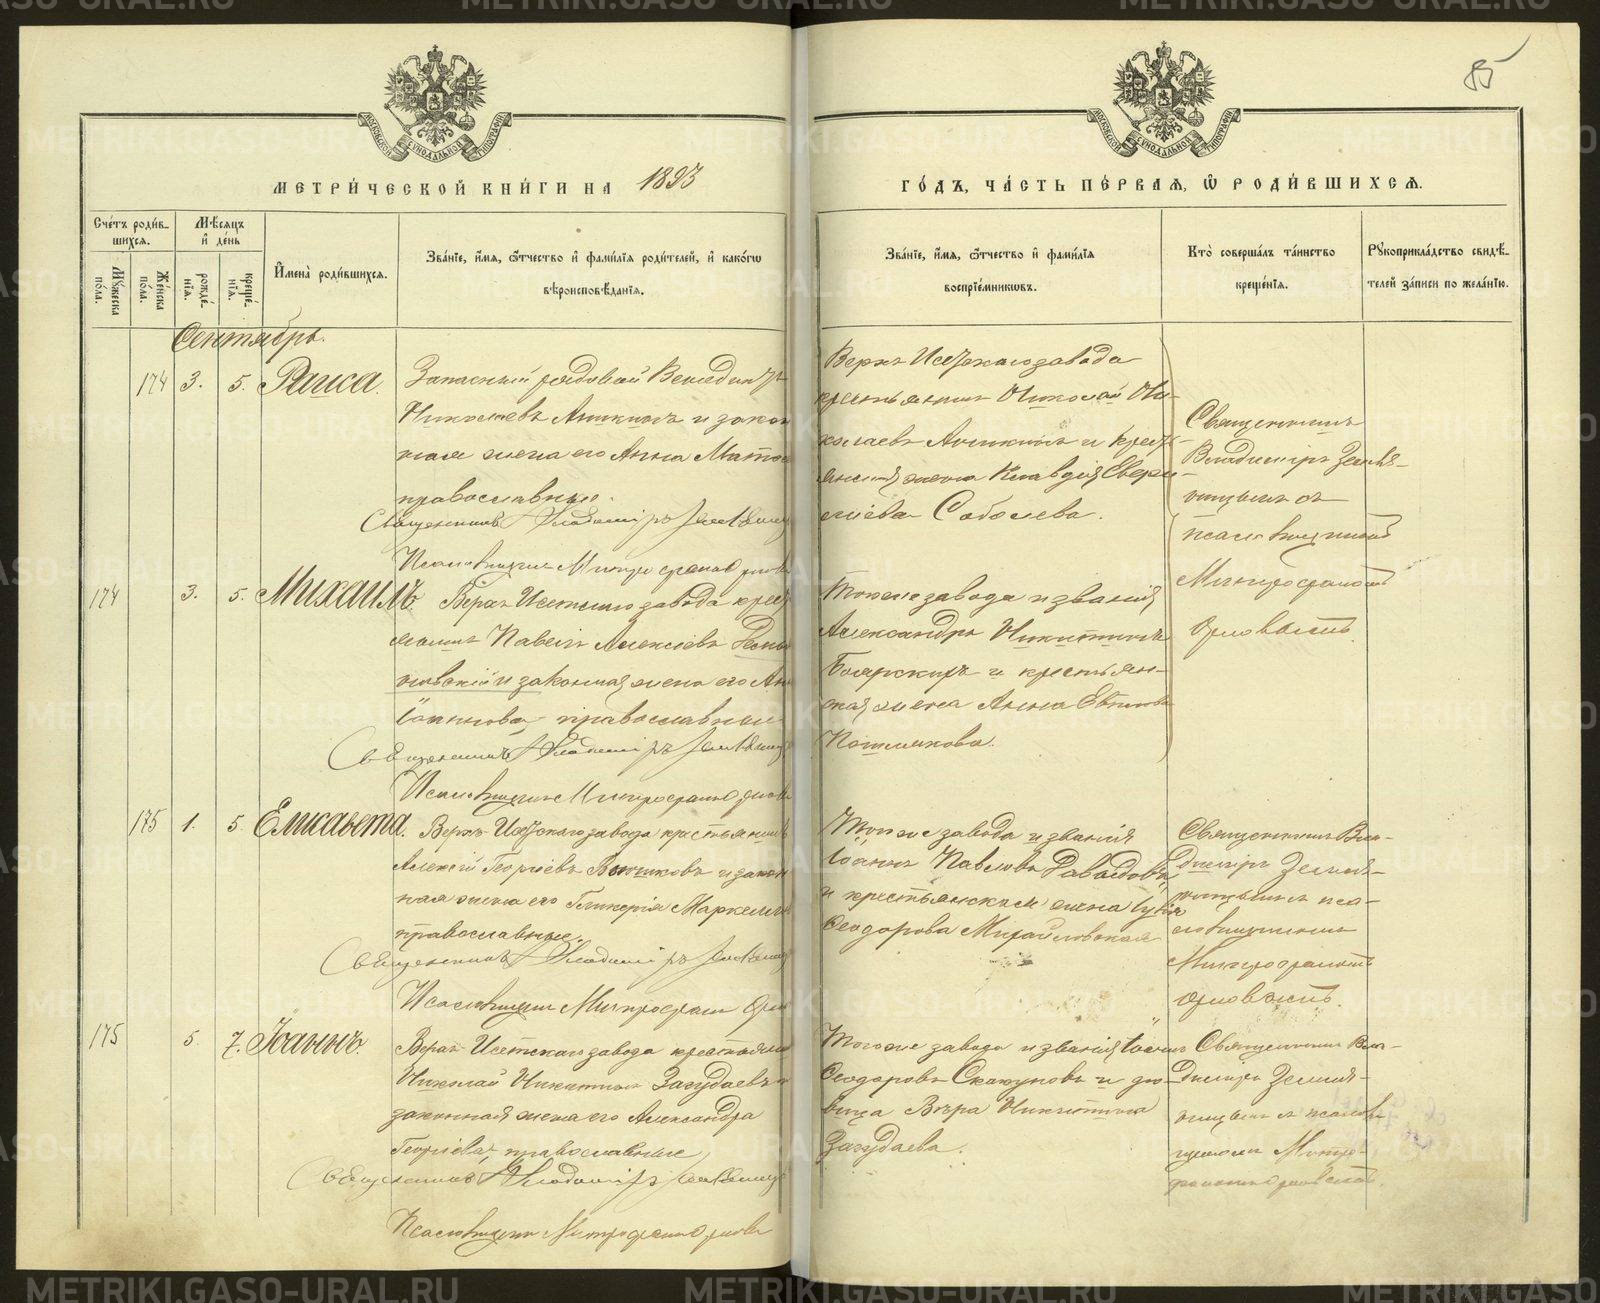 85
МОСКОВСКОЙ СѴНОДАЛЬНОЙ ТИПОГРАФІИ
МОСКОВСКОЙ СѴНОДАЛЬНОЙ ТИПОГРАФІИ
МЕТРИ́ЧЕСКОЙ КНИ́ГИ НА 1893
ГО́ДЪ, ЧА́СТЬ ПЕ́РВАЯ, Ѽ РОДИ́ВШИХСЯ.
Сче́тъ роди́в-
шихся.
Мꙋжеска по́ла.
Же́нска по́ла.
Мѣ́сяцъ
и҆ де́нь
рожде́-
нїя.
креще́-
нїя.
И҆мена̀ роди́вшихся.
Зва́нїе, и҆́мя, ѻ҆́тчество и҆ фами́лїя роди́телей, и҆ како́гѡ
вѣроисповѣ́данїя.
Зва́нїе, и҆́мя, ѻ҆́тчество и҆ фами́лїя
воспрїе́мникѡвъ.
Кто̀ соверша́лъ та́инство
креще́нїя.
Рꙋкоприкла́дство свидѣ́-
телей за́писи по жела́нїю.
Сентябрь.
174 3. 5. Раиса.
Запасный рядовой Венедиктъ
Николаевъ Аникинъ и закон
ная жена его Анна
православные.
Священникъ Владиміръ Земляницынъ
Псаломщикъ Митрофанъ Орлов
Верхъ Исетскаго завода
крестьянинъ Николай Ни-
колаевъ Аникинъ и крест-
янская жена Клавдія
Соболева.
Священникъ
Владиміръ Земля-
ницынъ съ
псаломщикомъ
Митрофаномъ
Орловымъ.
174 3. 5. Михаилъ.
Верхъ Исетскаго завода крест
янинъ Павелъ Алексіевъ
и законная жена его Анна
Іоаннова, православные
Священникъ Владиміръ Земляницынъ
Псаломщикъ Митрофанъ Орлов
Тогоже завода и званія
Александръ Никитинъ
Боярскихъ и крестьян-
ская жена Анна
175 1. 5. Елисавета.
Верхъ Исетскаго завода крестьянинъ
Алексій Георгіевъ и закон
ная жена его Гликерія Маркелова
православные.
Священникъ Владиміръ Земляницынъ
Псаломщикъ Митрофанъ Орлов
Тогоже завода и званія
Іоаннъ Павловъ
и крестьянская жена
Ѳеодорова Михайловская
Священникъ Вла-
диміръ Земля-
ницынъ съ пса-
ломщикомъ
Митрофаномъ
Орловымъ.
175 5. 7. Іоаннъ.
Верхъ Исетскаго завода крестьянинъ
Николай Никитинъ Загудаевъ и
законная жена его Александра
Георгіева, православные
Священникъ Владиміръ Земляницынъ
Псаломщикъ Митрофанъ Орлов
Тогоже завода и званія Іоаннъ
Ѳеодоровъ Скакуновъ и дѣ-
вица Вѣра Никитина
Загудаева.
Священникъ Вла-
диміръ Земля-
ницынъ съ псалом-
щикомъ Митро-
фаномъ Орловымъ.
METRIKI.GASO-URAL.RU